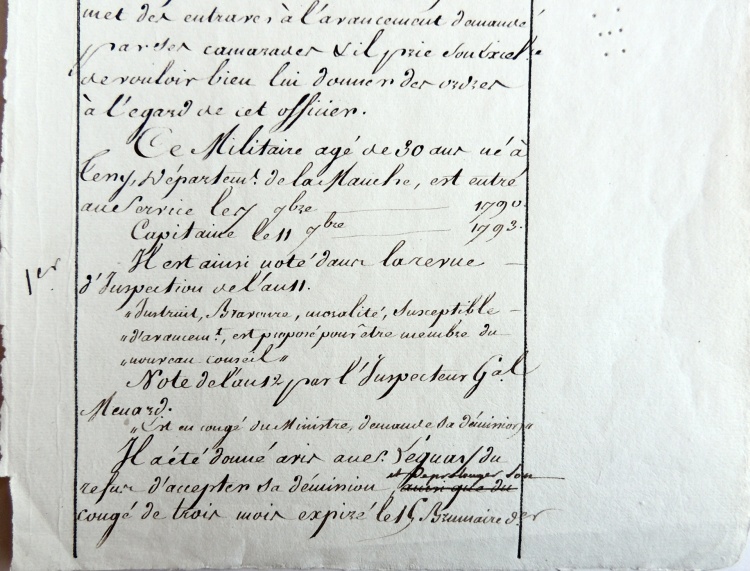 met des entraves à l'avancement demandé
par ses camarades & il prie son Excel.ce
de vouloir bien lui donner des ordres
à l'egard de cet officier.
Ce Militaire agé de 30 ans né à
Département de la Manche, est entré
au Service le 7bre 1790.
Capitaine le 11 7bre 1793.
Il est ainsi noté dans la revue
1er
d'Inspection de l'an 11.
"Instruit, Bravoure, moralité, susceptible
"d'avancemt., est proposé pour être membre du
"nouveau conseil"
Note de l'an 12 par l'Inspecteur Gal.
Menard.
"Est en congé du Ministre, demande sa démission"
Il a été donné avis au Sr. Lequay du
refus d'accepter sa démission et de prolonger son
aussi que du
congé de trois mois expiré le 15 Brumaire der